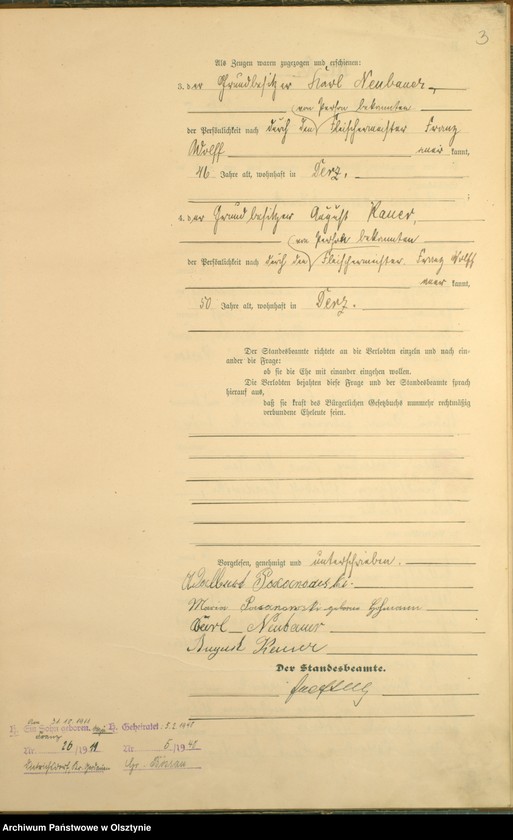 3
Als Zeugen waren zugezogen und erschienen:
3. der Grundbesitzer Karl Neubauer,
der Persönlichkeit nach durch den (von Person bekannten) Fleischermeister Franz
Wolff anerkannt,
46 Jahre alt, wohnhaft in Derz.
4. der Grundbesitzer August Kauer,
der Persönlichkeit nach durch den (von Person bekannten) Fleischermeister Franz Wolff
anerkannt,
50 Jahre alt, wohnhaft in Derz.
Der Standesbeamte richtete an die Verlobten einzeln und nach ein-
ander die Frage:
ob sie die Ehe mit einander eingehen wollen.
Die Verlobten bejahten diese Frage und der Standesbeamte sprach
hierauf aus,
daß sie kraft des Bürgerlichen Gesetzbuchs nunmehr rechtmäßig
verbundene Eheleute seien.
Vorgelesen, genehmigt und unterschrieben.
Adalbert
Maria geborene
Karl Neubauer
August Kauer
Der Standesbeamte.
Am
Ein Sohn geboren. H. Geheiratet 5.2.1948
Franz
Nr. 26/1911 Nr. 5/1948